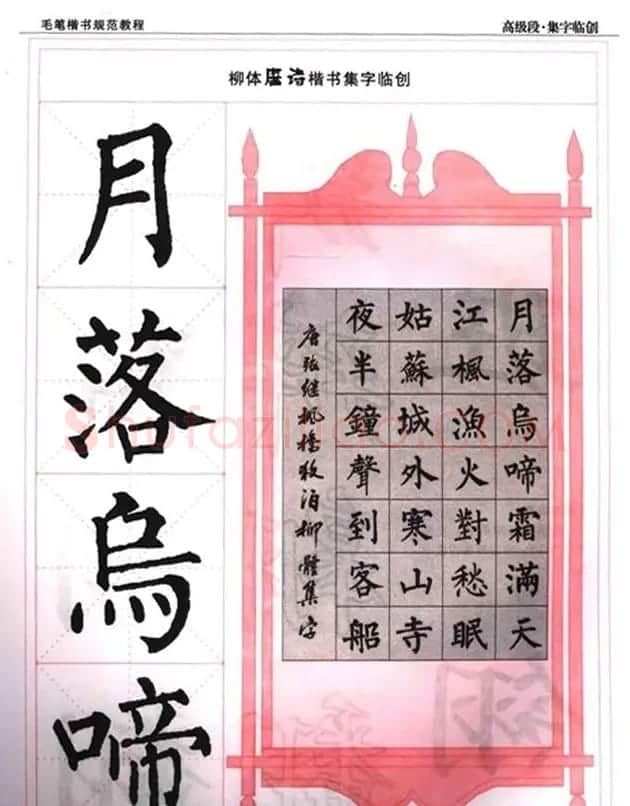 毛笔楷书规范教程
高级段·集字临创
柳体唐诗楷书集字临创
月
落
烏
啼
月落烏啼霜滿天
江楓漁火對愁眠
姑蘇城外寒山寺
夜半鐘聲到客船
唐張继枫橋夜泊柳體集字